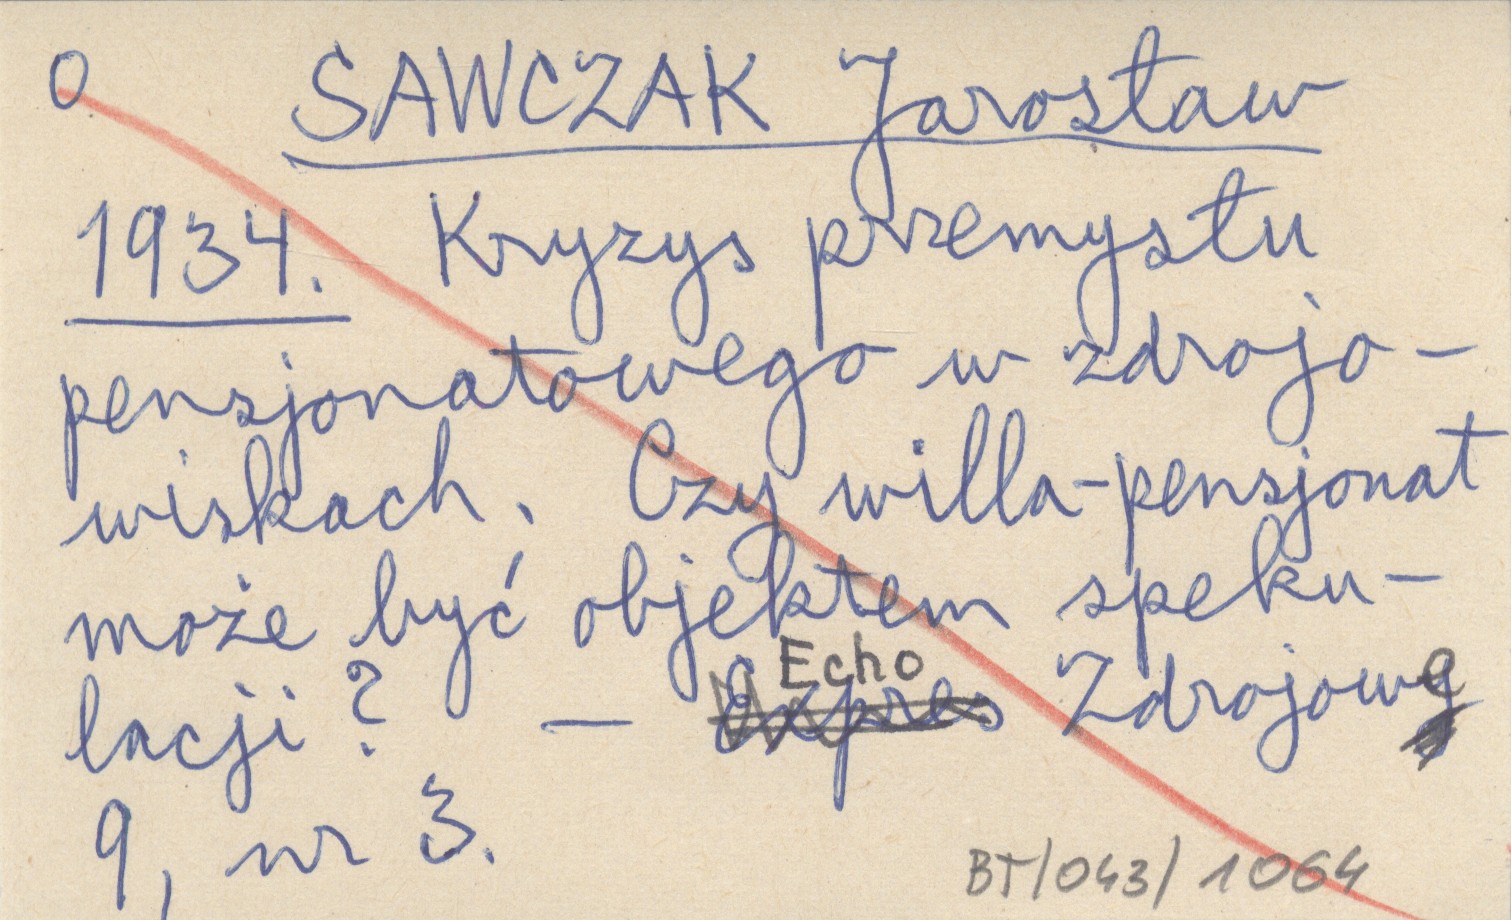 0 SAWCZAK Jarosław
1934. Kryzys przemysłu
pensjonatowego w zdrojo-
wiskach. Czy willa-pensjonat
może być objektem speku-
lacji? — Expres Echo Zdrojowe
9, nr 3.
BT/043/1064